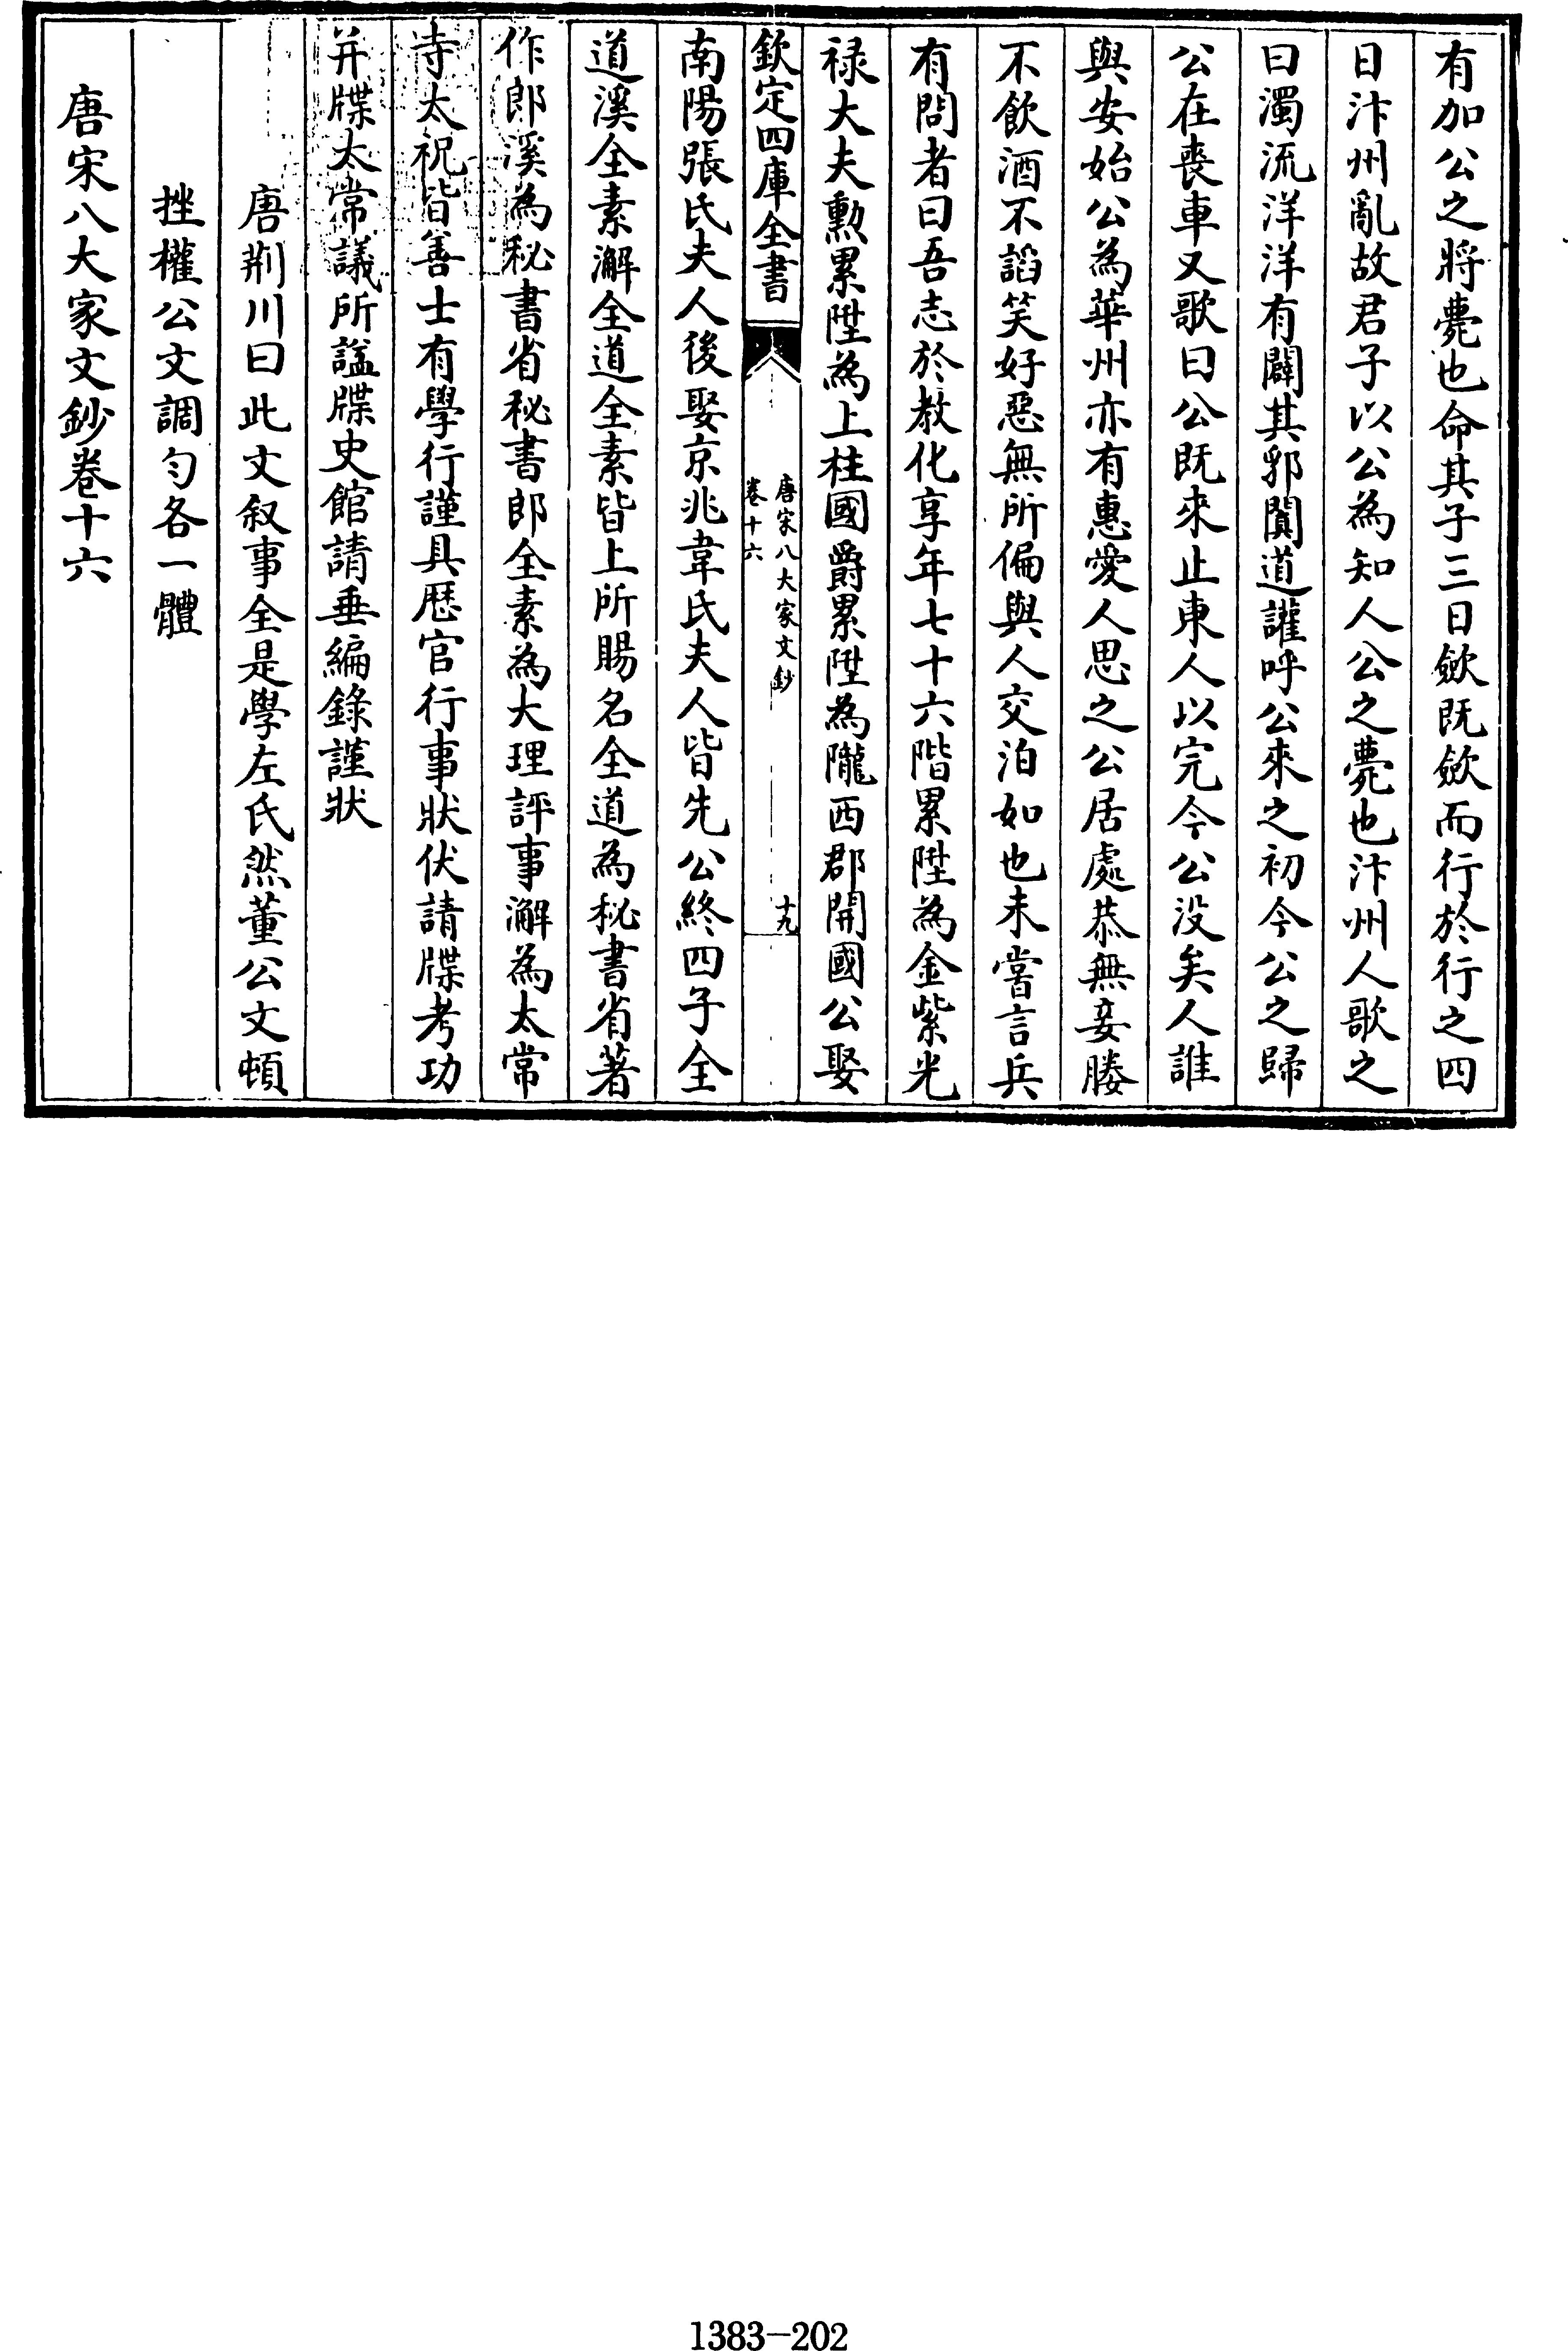 有加公之將薨也命其子三日斂既斂而行於行之四
日汴州亂故君子以公為知人公之薨也汴州人歌之
曰濁流洋洋有闢其郛闐道讙呼公來之初今公之歸
公在喪車又歌曰公既來止東人以完今公没矣人誰
與安始公為華州亦有惠愛人思之公居處恭無妾媵
不飲酒不諂笑好惡無所偏與人交泊如也未嘗言兵
有問者曰吾志於教化享年七十六階累陞為金紫光
禄大夫勲累陞為上柱國爵累陞為隴西郡開國公娶
欽定四庫全書
唐宋八大家文鈔
卷十六
十九
南陽張氏夫人後娶京兆韋氏夫人皆先公終四子全
道溪全素澥全道全素皆上所賜名全道為秘書省著
作郎溪為秘書省秘書郎全素為大理評事澥為太常
寺太祝皆善士有學行謹具歴官行事狀伏請牒考功
并牒太常議所諡牒史館請垂編錄謹狀
唐荆川曰此文叙事全是學左氏然董公文頓
挫權公文調勻各一體
唐宋八大家文鈔卷十六
1383-202